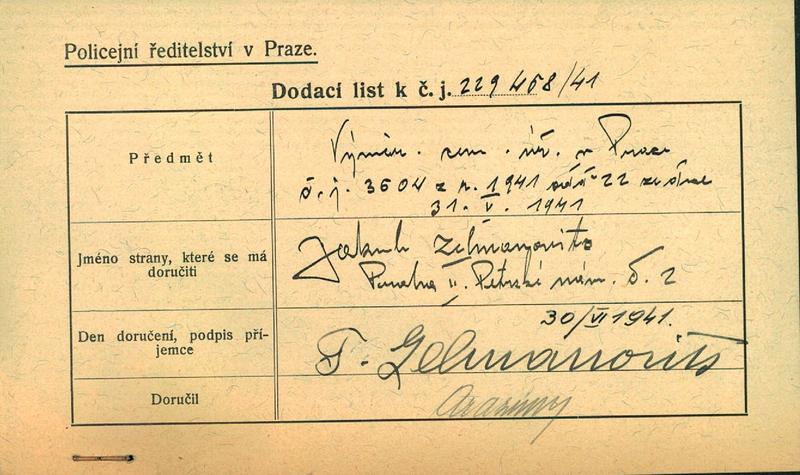 Policejní ředitelství v Praze.
Dodací list k č. j. 229 458/41
Předmět
Výměr. zem. úř. v Praze
č. j. 3604 z r. 1941 22 ze dne
31. V. 1941
Jméno strany, které se má
doručiti
Jakub Zelmanovits
Praha II. Petrské nám. č. 2
Den doručení, podpis pří-
jemce
30/VI 1941.
Zelmanovits
Doručil